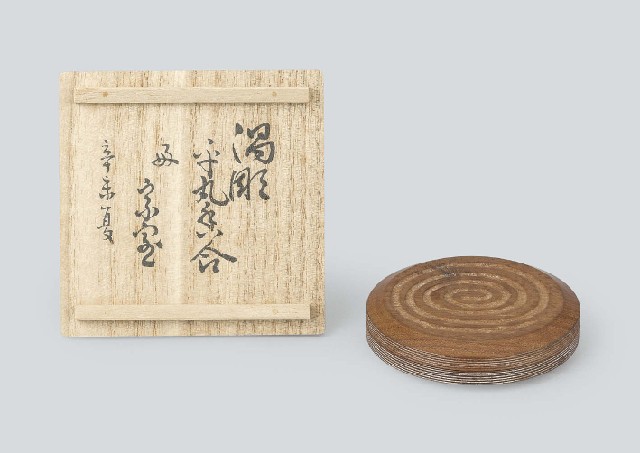 渦彫
平丸香合
好
宗室
辛未夏